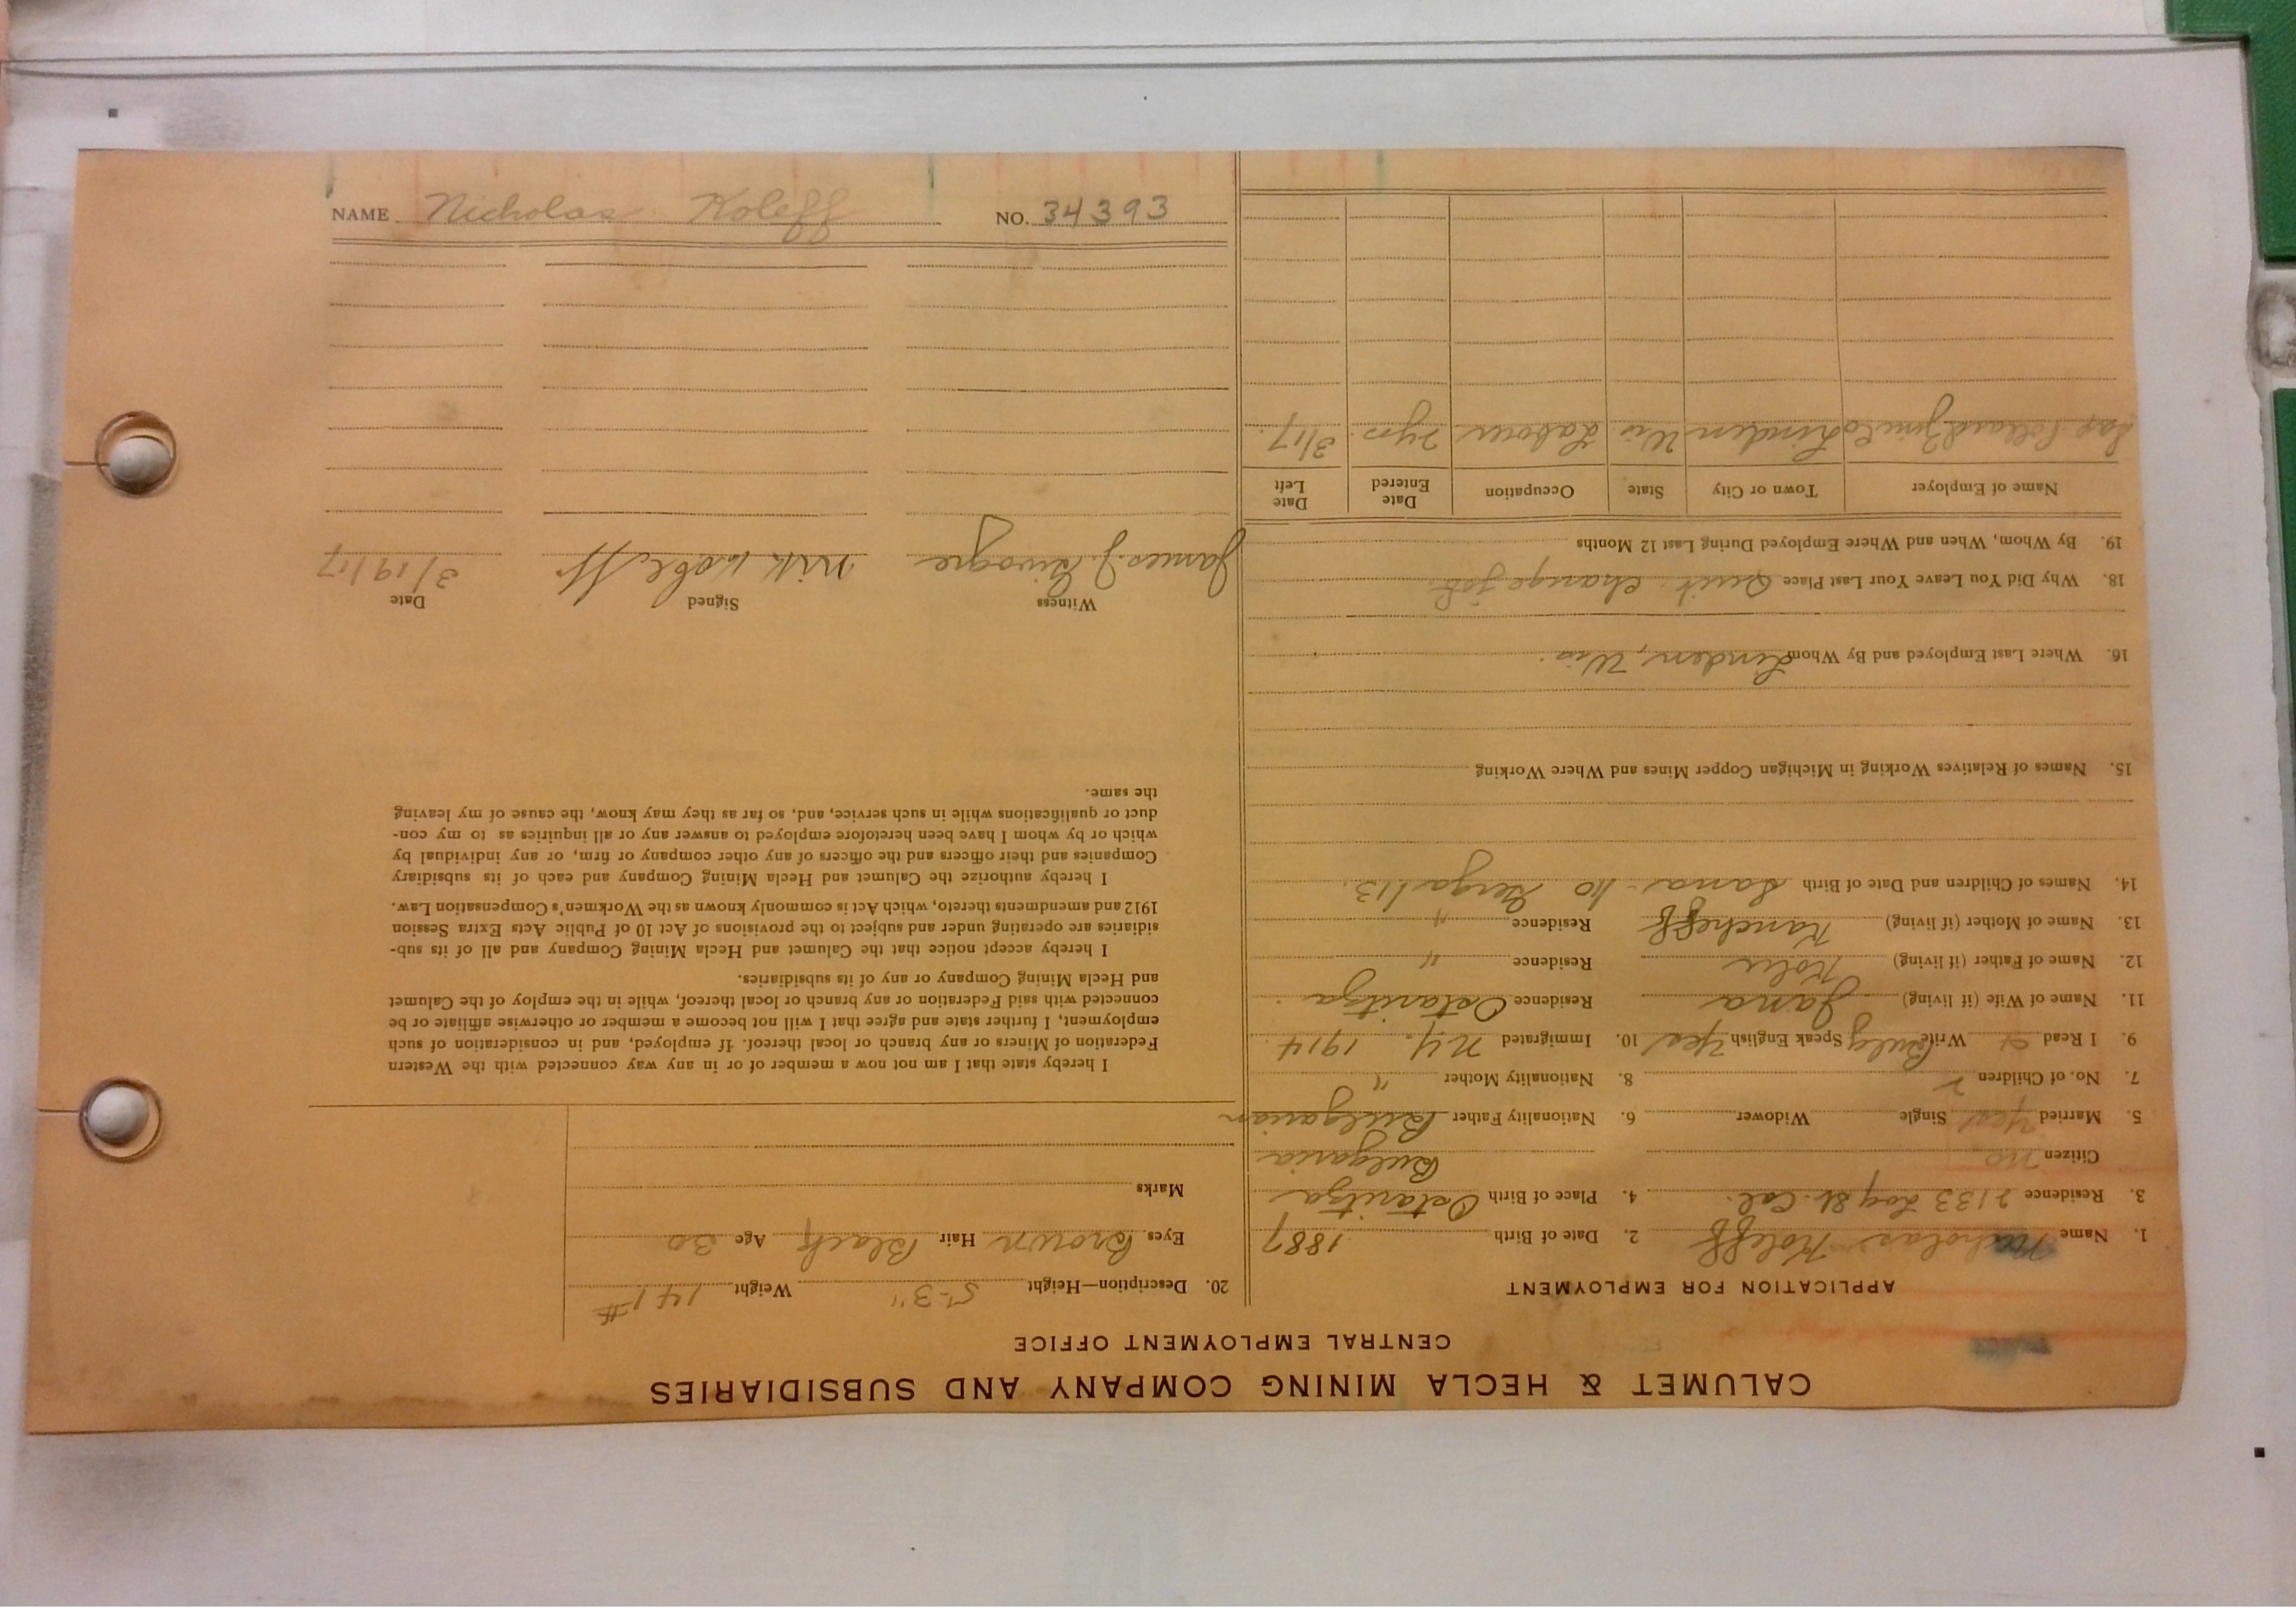 CALUMET & HECLA MINING COMPANY AND SUBSIDIARIES
CENTRAL EMPLOYMENT OFFICE
APPLICATION FOR EMPLOYMENT
1. Name Nicholas Koleff 2. Date of Birth 1887
3. Residence 2133 Log St. Cal. 4. Place of Birth Ostaritza
Citizen No. Bulgaria
5. Married Yes Single Widower 6. Nationality Father Bulgarian
7. No. of Children 2 8. Nationality Mother "
9. I Read & Write Bulg Speak English Yes 10. Immigrated N.Y. 1914
11. Name of Wife (if living) Jana Residence Ostaritza
12. Name of Father (if living) Kole Residence "
13. Name of Mother (if living) Kancheff Residence "
14. Names of Children and Date of Birth Sana - 110 Gerga 113.
15. Names of Relatives Working in Michigan Copper Mines and Where Working
16. Where Last Employed and By Whom Linden, Wis.
18. Why Did You Leave Your Last Place Quit. Change job.
19. By Whom, When and Where Employed During Last 12 Months
Name of Employer Town or City State Occupation Date Entered Date Left
Zinc Co Linden Wis Laborer 2 yrs. 3/17.
20. Description—Height 5'-3" Weight 141#
Eyes Brown Hair Black Age 30
Marks
I hereby state that I am not now a member of or in any way connected with the Western
Federation of Miners or any branch or local thereof. If employed, and in consideration of such
employment, I further state and agree that I will not become a member or otherwise affiliate or be
connected with said Federation or any branch or local thereof, while in the employ of the Calumet
and Hecla Mining Company or any of its subsidiaries.
I hereby accept notice that the Calumet and Hecla Mining Company and all of its sub-
sidiaries are operating under and subject to the provisions of Act 10 of Public Acts Extra Session
1912 and amendments thereto, which Act is commonly known as the Workmen's Compensation Law.
I hereby authorize the Calumet and Hecla Mining Company and each of its subsidiary
Companies and their officers and the officers of any other company or firm, or any individual by
which or by whom I have been heretofore employed to answer any or all inquiries as to my con-
duct or qualifications while in such service, and, so far as they may know, the cause of my leaving
the same.
Witness Signed Date
James J. Nik Koleff 3/19/17
NAME Nicholas Koleff NO. 34393